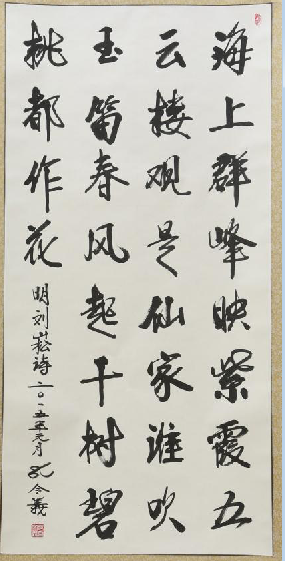 海上群峰映紫霞五
云楼观是仙家谁吹
玉笛春风起千树碧
桃都作花
明刘菘诗二〇一五年元月孔令義